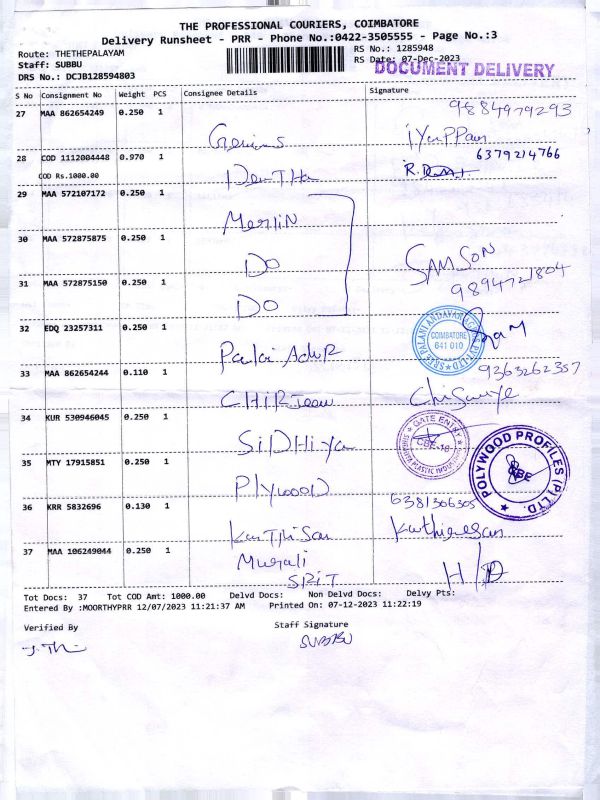 THE PROFESSIONAL COURIERS, COIMBATORE
Delivery Runsheet - PRR - Phone No.:0422-3505555 - Page No.:3
Route: THETHEPALAYAM
RS No.: 1285948
Staff: SUBBU
RS Date: 07-Dec-2023
DOCUMENT DELIVERY
DRS No.: DCJB128594803
S No Consignment No Weight PCS Consignee Details Signature
27 MAA 862654249 0.250 1 9884979293
Genius iyapPPan
28 COD 1112004448 0.970 1 6379214766
COD Rs.1000.00
29 MAA 572107172 0.250 1
Merlin
30 MAA 572875875 0.250 1
DO SAMSON
31 MAA 572875150 0.250 1 9894721804
DO
32 EDQ 23257311 0.250 1
COIMBATORE
641 010
33 MAA 862654244 0.110 1 9363262357
34 KUR 530946045 0.250 1
GATE ENTRY
SiDHiya
35 MTY 17915851 0.250 1
POLYWOOD PROFILES (P) LTD.
PlywooD
36 KRR 5832696 0.130 1 6381306305
Karthigesan
37 MAA 106249044 0.250 1
Murali
H/D
Tot Docs: 37 Tot COD Amt: 1000.00 Delvd Docs: Non Delvd Docs: Delvy Pts:
Entered By :MOORTHYPRR 12/07/2023 11:21:37 AM Printed On: 07-12-2023 11:22:19
Verified By Staff Signature
SUBBU